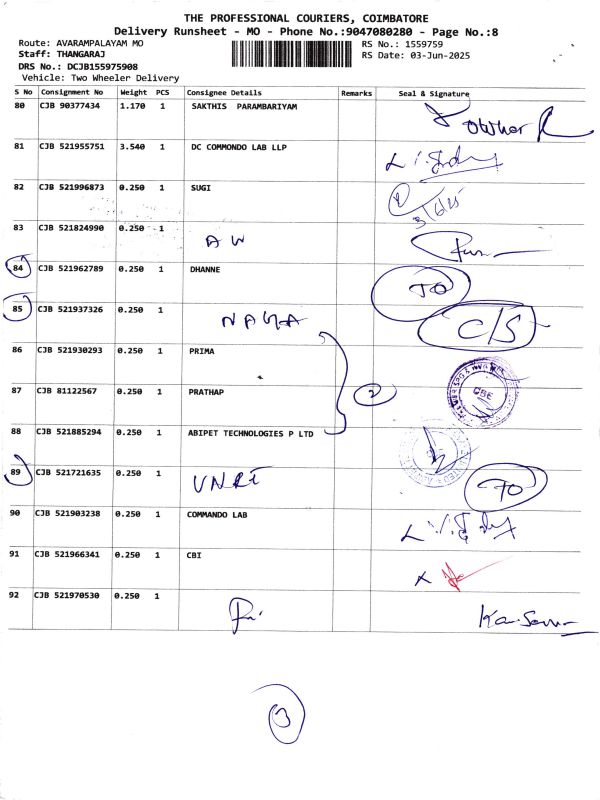 THE PROFESSIONAL COURIERS, COIMBATORE
Delivery Runsheet - MO - Phone No.:9047080280 - Page No.:8
Route: AVARAMPALAYAM MO
Staff: THANGARAJ
DRS No.: DCJB155975908
Vehicle: Two Wheeler Delivery
RS No.: 1559759
RS Date: 03-Jun-2025
S No Consignment No Weight PCS Consignee Details Remarks Seal & Signature
80 CJB 90377434 1.170 1 SAKTHIS PARAMBARIYAM
81 CJB 521955751 3.540 1 DC COMMONDO LAB LLP
82 CJB 521996873 0.250 1 SUGI
83 CJB 521824990 0.250 1 AW
84 CJB 521962789 0.250 1 DHANNE TO
85 CJB 521937326 0.250 1 C/S
86 CJB 521930293 0.250 1 PRIMA
87 CJB 81122567 0.250 1 PRATHAP 2 CBE
88 CJB 521885294 0.250 1 ABIPET TECHNOLOGIES P LTD
89 CJB 521721635 0.250 1 TO
90 CJB 521903238 0.250 1 COMMANDO LAB
91 CJB 521966341 0.250 1 CBI
92 CJB 521970530 0.250 1
3